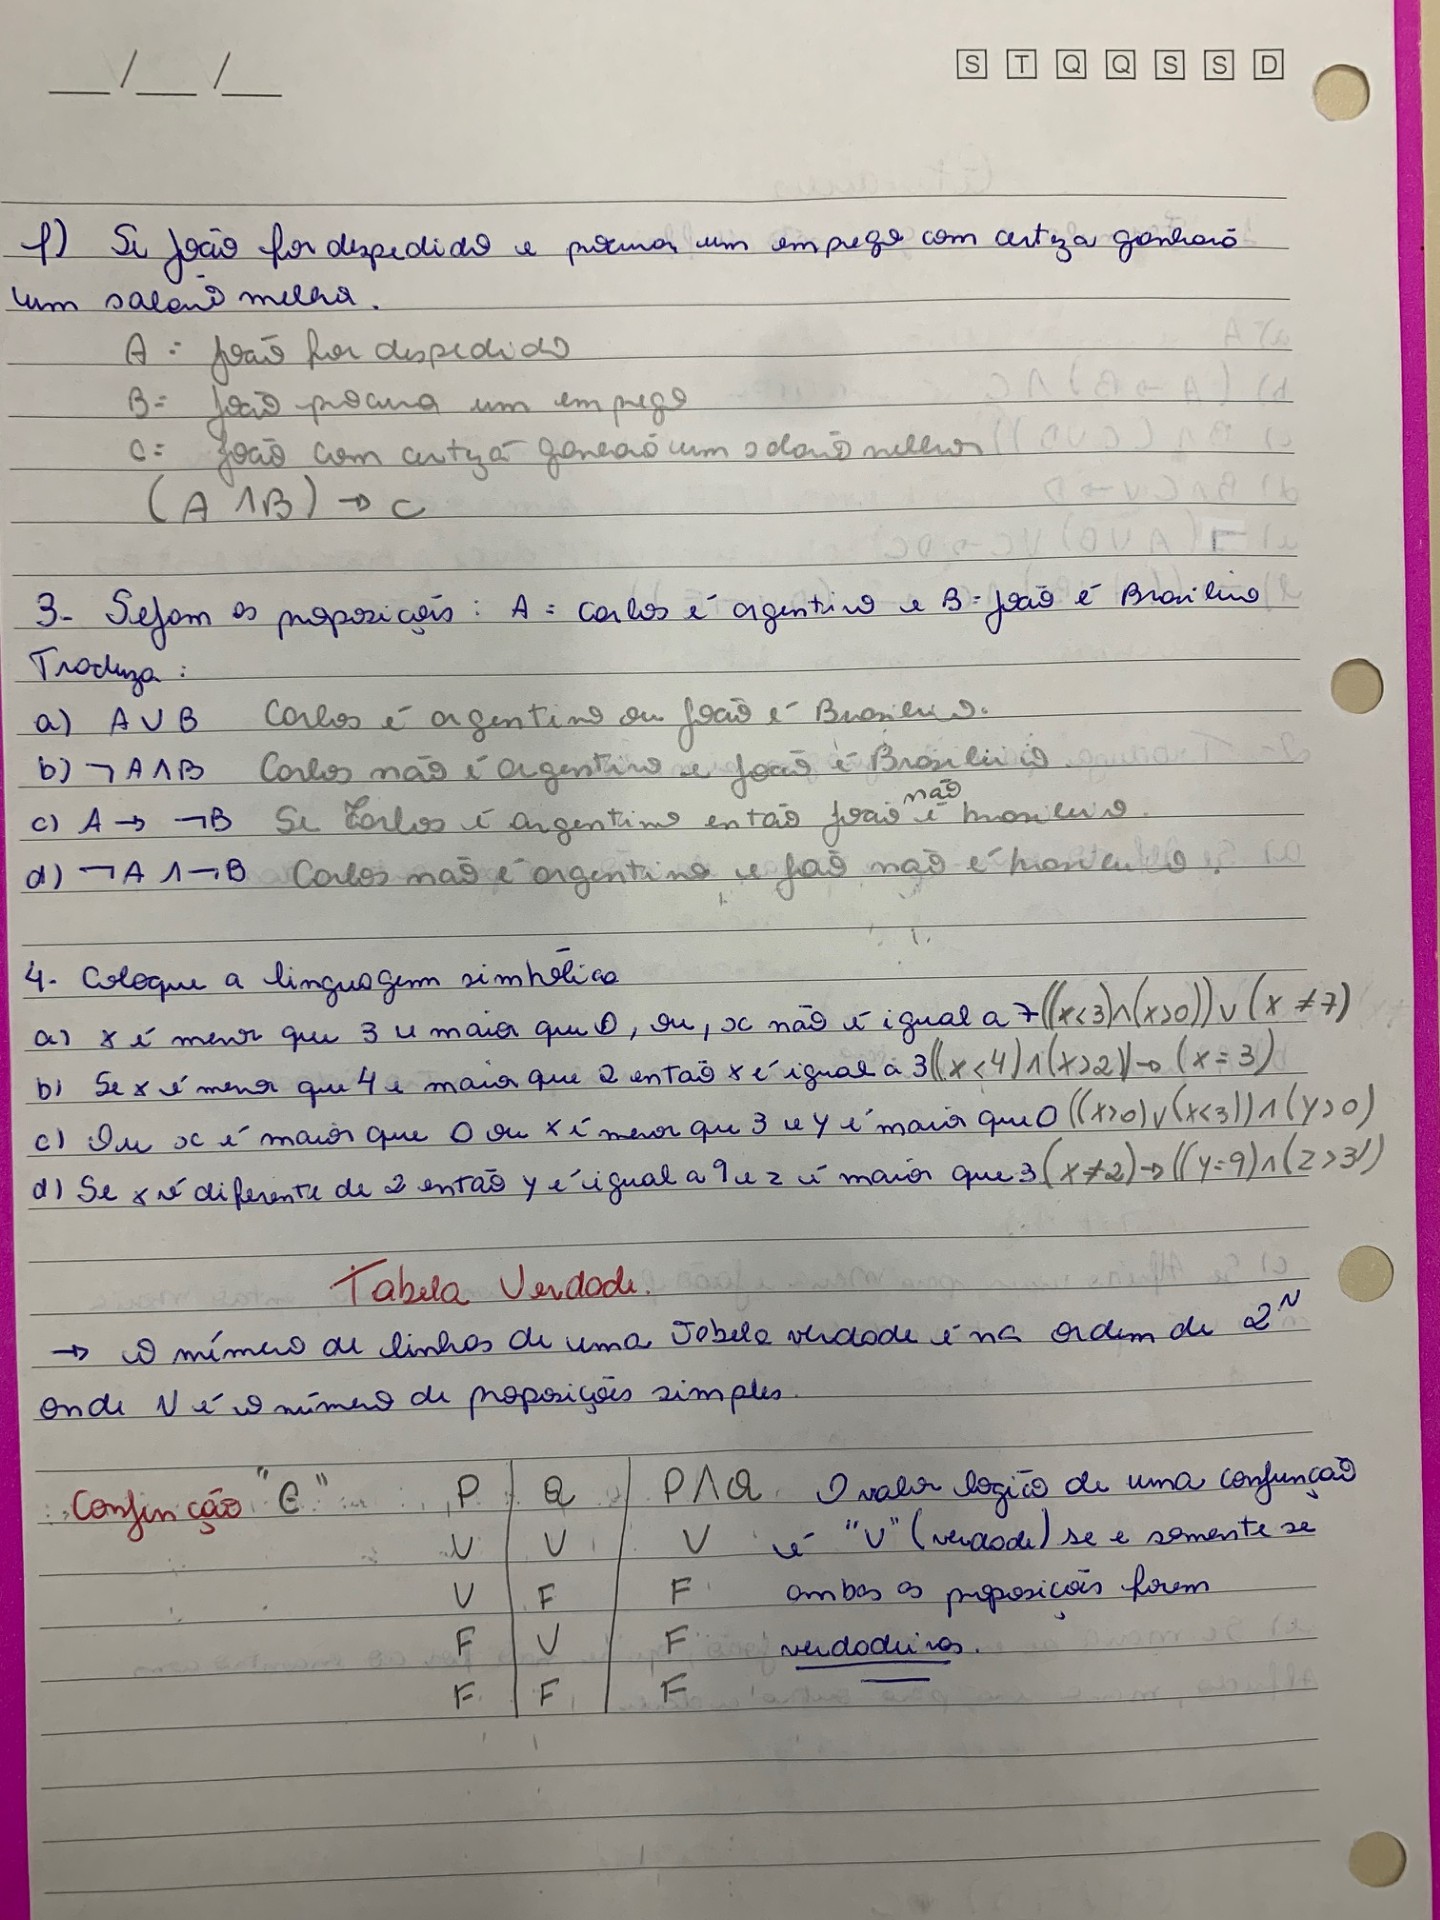 __/__/__ S T Q Q S S D
f) Se João for despedido e procurar um emprego com certeza ganhará
um salário melhor.
A = João for despedido
B = João procura um emprego
C = João com certeza ganhará um salário melhor
(A ∧ B) → C
3- Sejam as proposições: A = Carlos é argentino e B = João é Brasileiro
Traduza:
a) A ∨ B Carlos é argentino ou João é Brasileiro.
b) ¬A ∧ B Carlos não é argentino e João é Brasileiro.
c) A → ¬B Se Carlos é argentino então João não é brasileiro.
d) ¬A ∧ ¬B Carlos não é argentino e João não é brasileiro.
4- Coloque a linguagem simbólica
a) x é menor que 3 e maior que 0, ou, x não é igual a 7 ((x<3)∧(x>0)) ∨ (x ≠ 7)
b) Se x é menor que 4 e maior que 2 então x é igual a 3 ((x<4)∧(x>2)) → (x = 3)
c) Ou x é maior que 0 ou x é menor que 3 e y é maior que 0 ((x>0)∨(x<3))∧(y>0)
d) Se x é diferente de 2 então y é igual a 9 e z é maior que 3 (x≠2)→((y=9)∧(z>3))
Tabela Verdade.
→ O número de linhas de uma Tabela verdade é na ordem de 2ᴺ
onde N é o número de proposições simples.
Conjunção "e" P Q P∧Q O valor lógico de uma conjunção
V V V é "V" (verdade) se e somente se
V F F ambas as proposições forem
F V F verdadeiras.
F F F